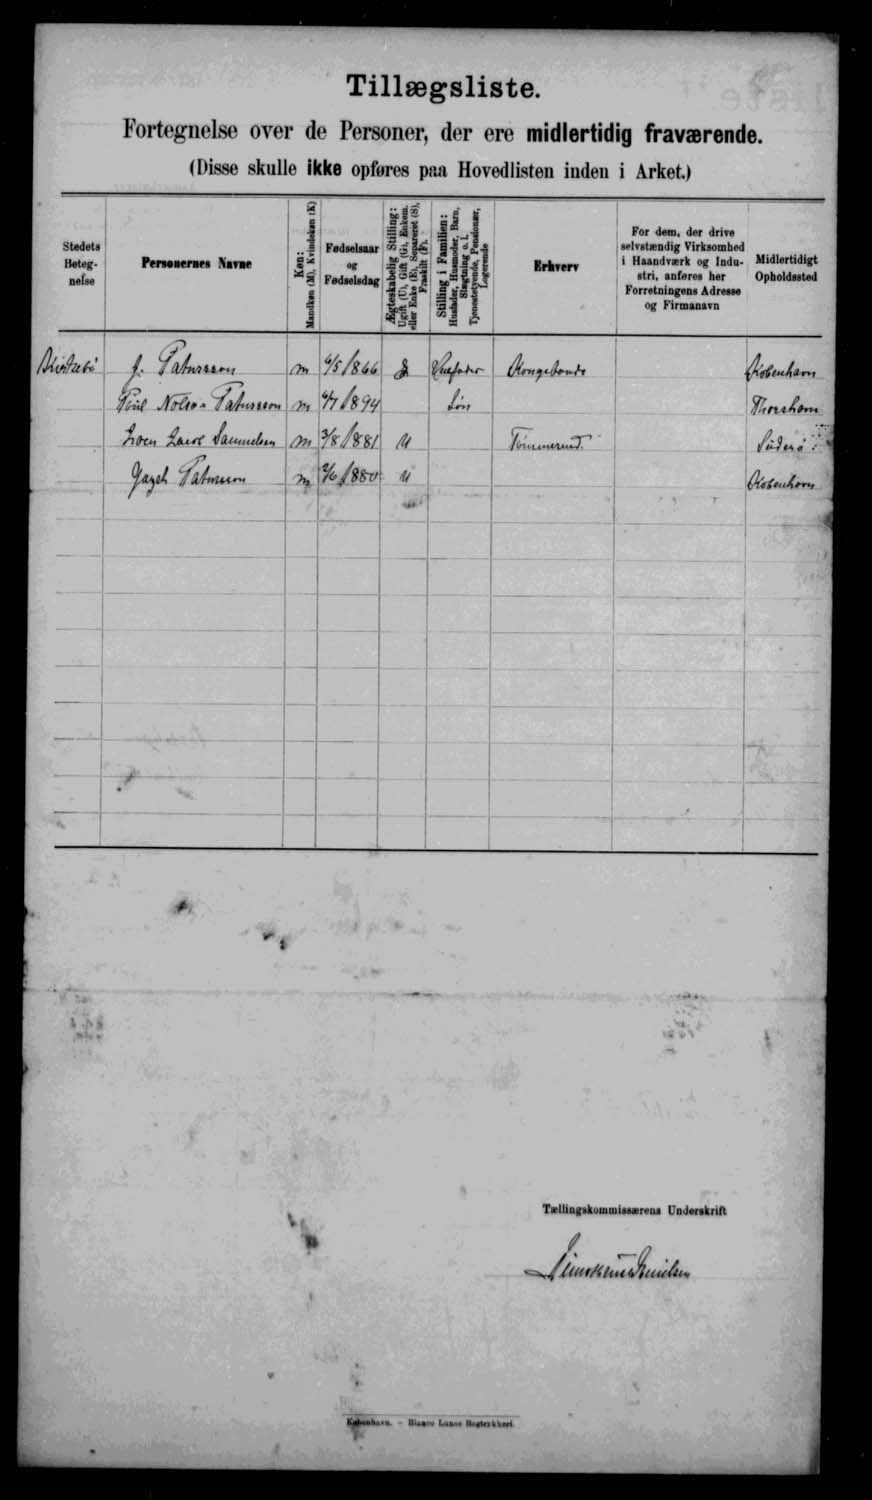 Tillægsliste.
Fortegnelse over de Personer, der ere midlertidig fraværende.
(Disse skulle ikke opføres paa Hovedlisten inden i Arket.)
Stedets Beteg- nelse
Personernes Navne
Køn: Mandkøn (M), Kvindekøn (K)
Fødselsaar og Fødselsdag
Ægteskabelig Stilling: Ugift (U), Gift (G), Enkem. eller Enke (E), Separeret (S), Fraskilt (F).
Stilling i Familien: Husfader, Husmoder, Barn, Slægtning o. l. Tjenestetyende, Pensionær, Logerende
Erhverv
For dem, der drive selvstændig Virksomhed i Haandværk og Indu- stri, anføres her Forretningens Adresse og Firmanavn
Midlertidigt Opholdssted
J. Patursson m 6/5 1866 G Husfader Kongebonde København
Poul Nolsø Patursson m 1894 Søn Thorshavn
Samuelsen m 3/8 1881 U Tømmermd. Suderø
Patursson m 2/6 1880 U København
Tællingskommissærens Underskrift
København. — Bianco Lunos Bogtrykkeri.